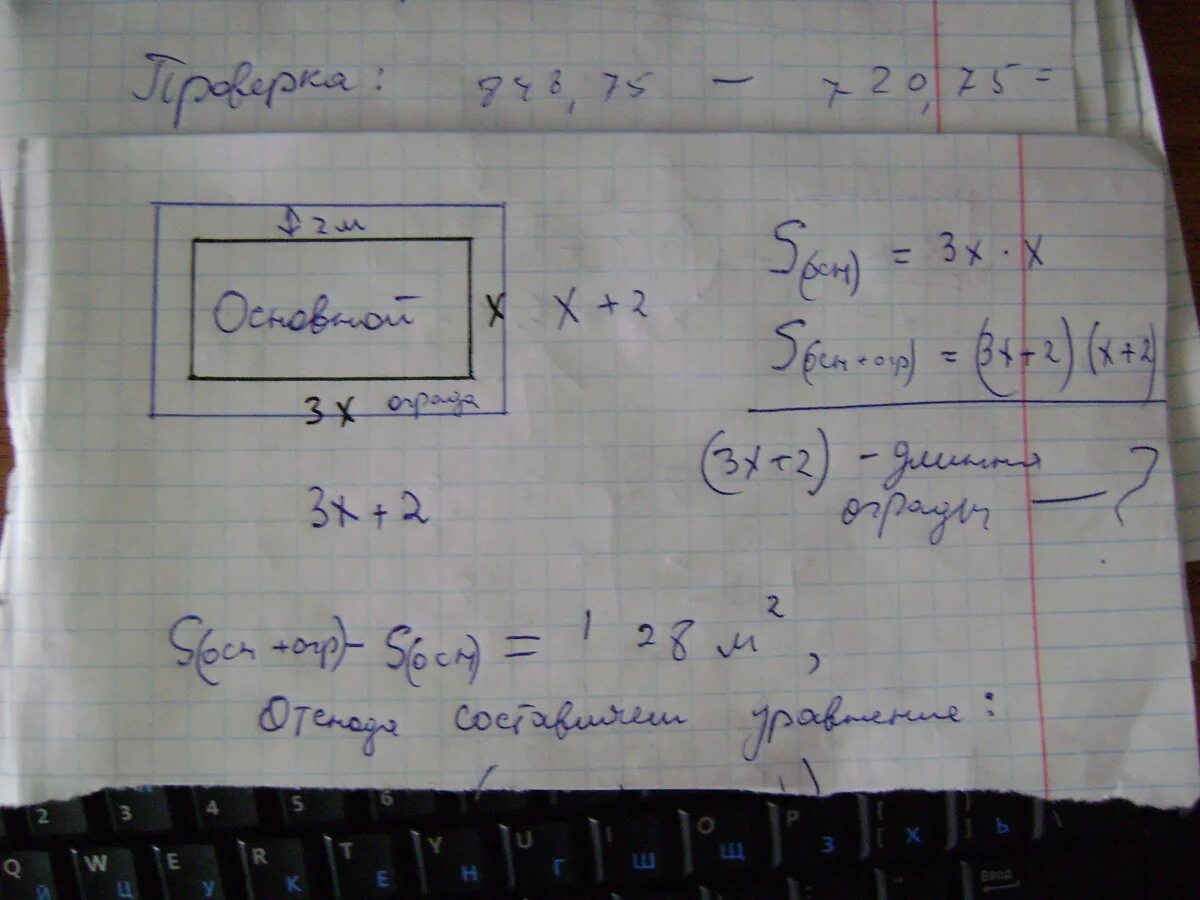 Проверка: 848,75 – 720,75 =
2м
Основной
х
х + 2
3х
ограда
3х + 2
S(осн) = 3х · х
S(осн + огр) = (3х + 2)(х + 2)
(3х + 2) - длинна
ограды — ?
S(осн + огр) - S(осн) = 128 м²,
Отсюда составляем уравнение:
2 3 4 5 6
Q W E R T Y U I O P
Й Ц У К Е Н Г Ш Щ З Х Ъ
Ввод